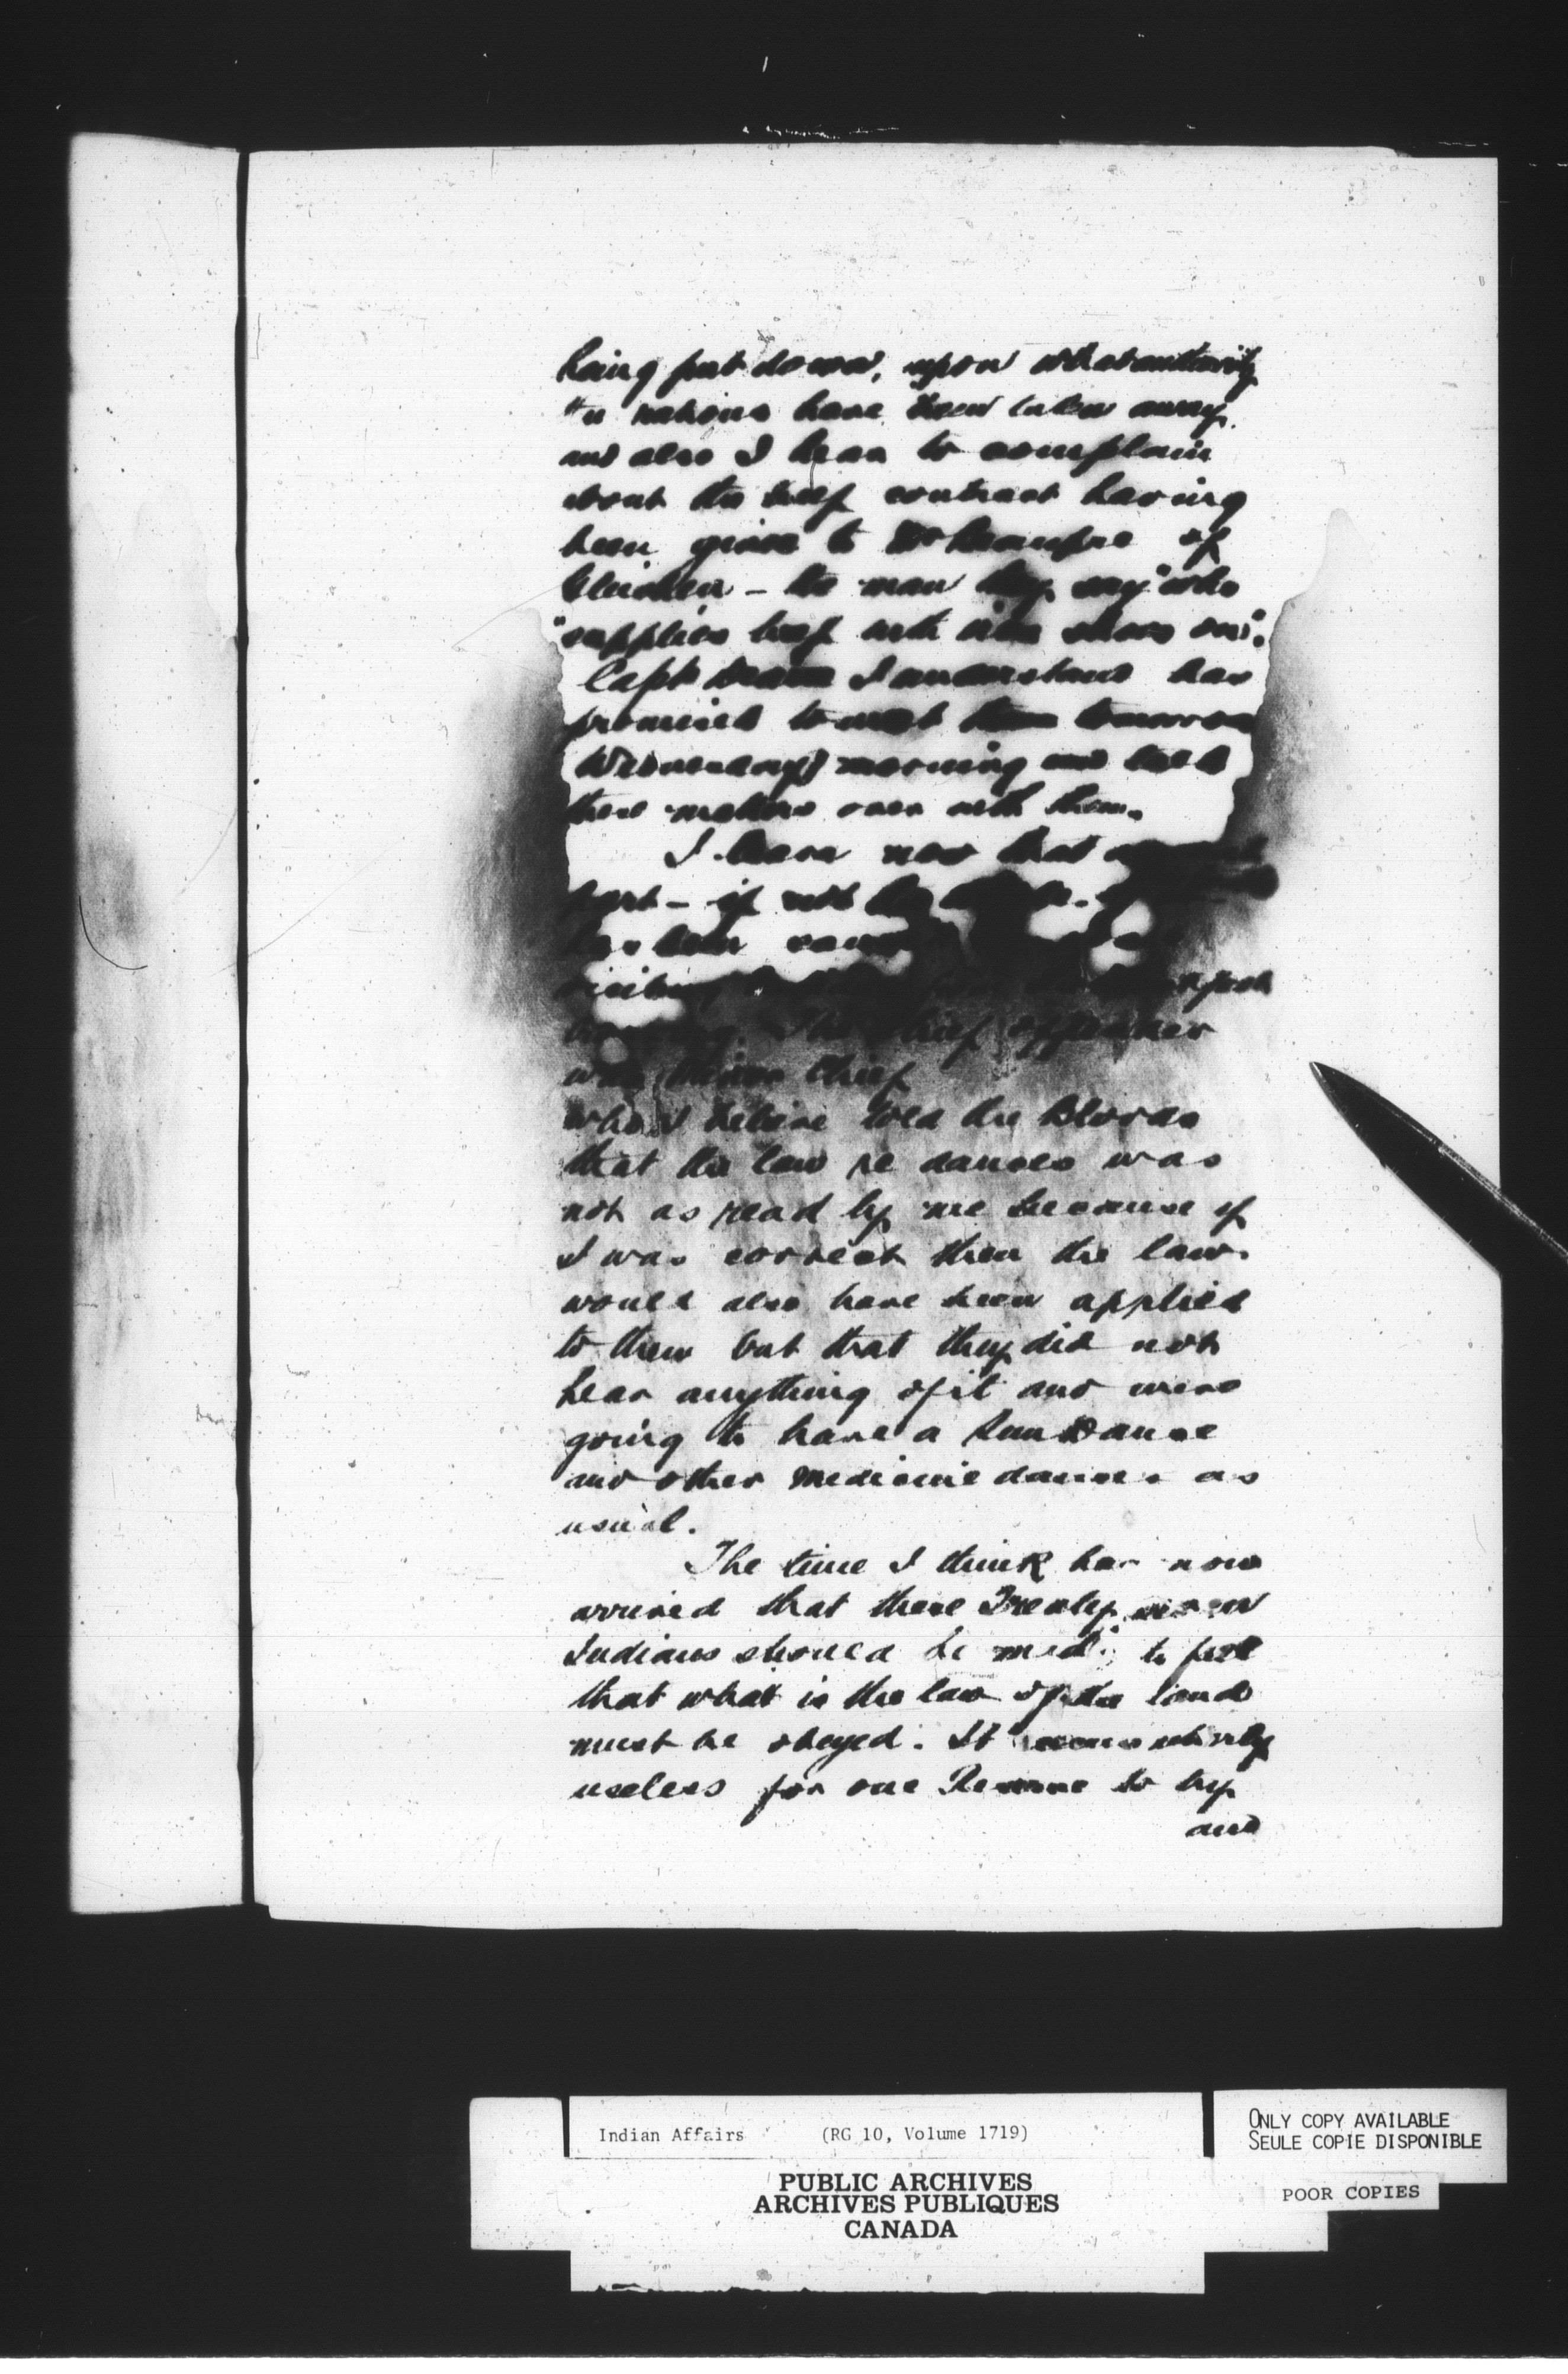 being put down, upon what authority
the rations have been taken away,
and also I hear to complain
about the beef contract having
been given to of
Gleichen – the man they say "who
"supplies beef with
Capt I understand has
promised to meet them tomorrow
Wednesday) morning and talk
these matters over with them.
I hear now that a
part – if not the
has been
visiting
The chief offender
was Chief
who I believe told the Bloods
that the law re dances was
not as read by me because if
I was correct then the law
would also have been applied
to them but that they did not
hear anything of it and were
going to have a Sun Dance
and other medicine dances as
usual.
The time I think has now
arrived that these Treaty
Indians should be made to feel
that what is the law of the land
must be obeyed. It seems utterly
useless for one Reserve to try
and
Indian Affairs (RG 10, Volume 1719)
PUBLIC ARCHIVES
ARCHIVES PUBLIQUES
CANADA
ONLY COPY AVAILABLE
SEULE COPIE DISPONIBLE
POOR COPIES